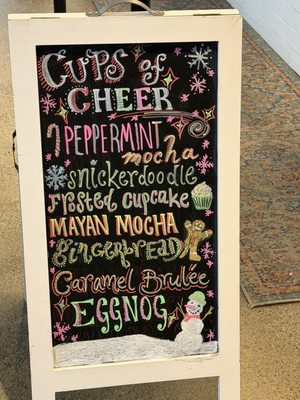 CUPS of
CHEER
PEPPERMINT
mocha
snickerdoodle
frosted cupcake
MAYAN MOCHA
gingerbread
Caramel Brulée
EGGNOG